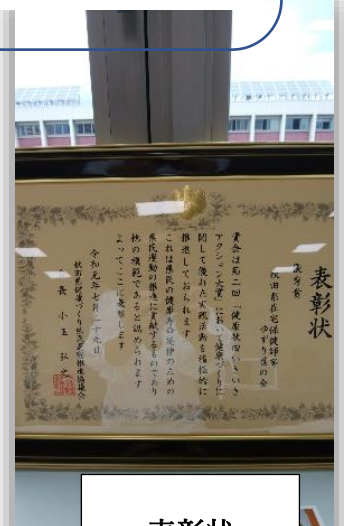 表彰状
優秀賞
秋田県在宅保健師等
ゆずり葉の会
貴会は第二回「健康秋田いきいき
アクション大賞」において健康づくりに
関して優れた実践活動を積極的に
推進しておられます
これは県民の健康寿命延伸のための
県民運動の推進に貢献するものであり
他の模範であると認められます
よってここに表彰します
令和元年七月二十九日
秋田県健康づくり県民運動推進協議会
会長 小玉 弘之
表彰状